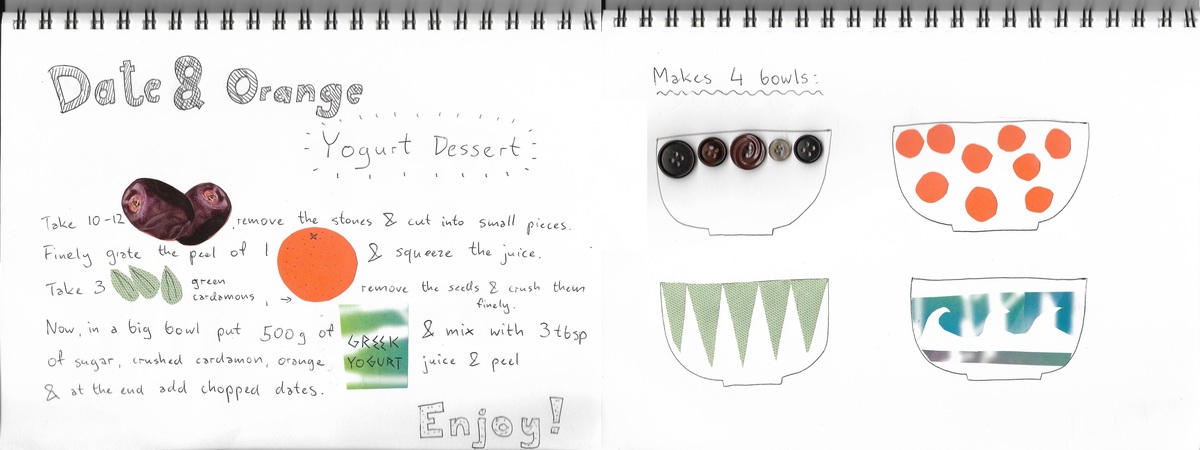 Date & Orange
Yogurt Dessert
Take 10-12 remove the stones & cut into small pieces.
Finely grate the peel of 1 & squeeze the juice.
Take 3 green cardamons, → remove the seeds & crush them finely.
Now, in a big bowl put 500g of GREEK YOGURT & mix with 3 tbsp
of sugar, crushed cardamon, orange juice & peel
& at the end add chopped dates.
Enjoy!
Makes 4 bowls: